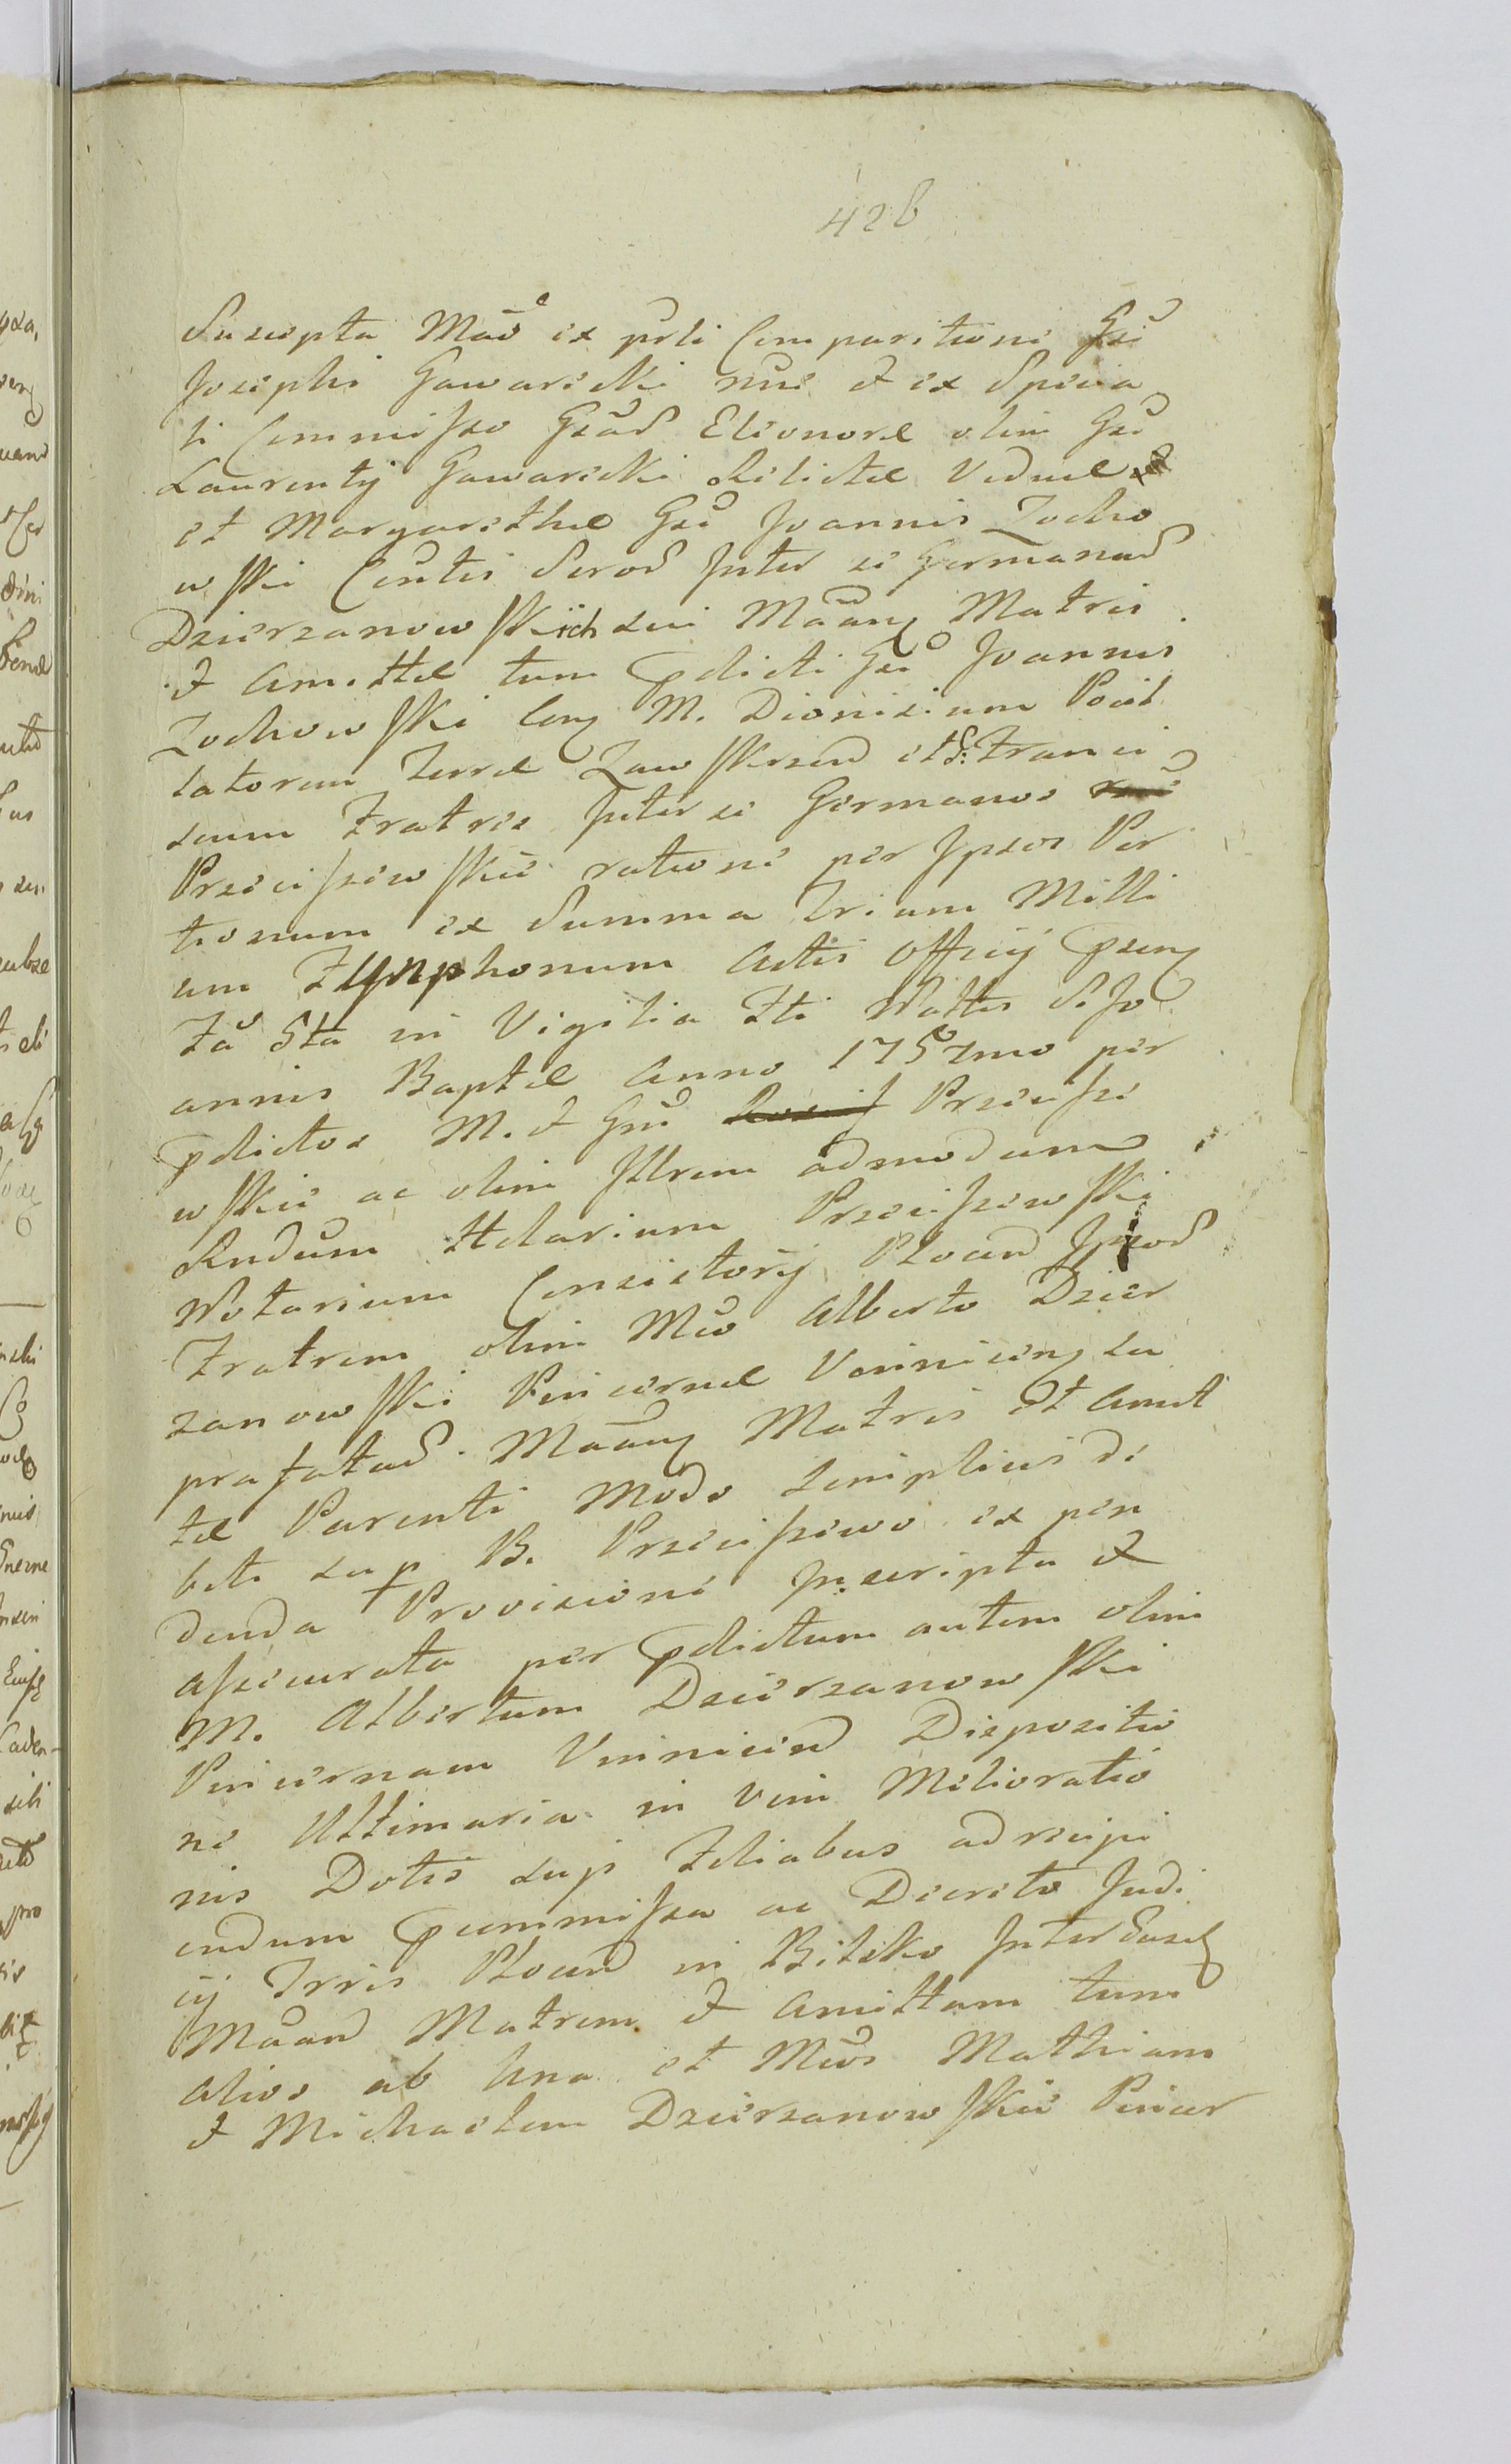 428
Suscepta Mão ex psti Comparitione Gsi
Josephi Gawarecki nne & ex Specia
li Commisso Gsaɽ Eleonoræ olim Gsi
Laurentij Gawarecki Relictæ Viduæ
et Margarethæ Gsi Joannis Zocho
wski Consortis Seroɽ Inter se Germanaɽ
Dzierzanowskich sui Maang Matris
& Amittæ tum pdicti Gsi Joannis
Zochowski Cong M. Dionisium Pocil
latorem Terræ Zawskrzen et G: Franci
scum Fratres Inter se Germanos
Przeciszewskie ratione per Ipsos Por
tionum ex Summa Trium Milli
um Tymphonum Actis Officij
Fa 5ta in Vigilia Fti Nattis S. Jo
annis Baptæ Anno 1757mo per
pdictos M. & Gsū Przecisze
wskie ac olim Illrem admodum
Rndum Hilarium Przeciszewski
Notarium Consistorij Plocen Ipsoɽ
Fratrem olim Mco Alberto Dzier
zanowski Pincernæ Vinnicen, su
prafataɽ Maang Matris et Amit
tæ Parenti Modo Simplicis De
biti sup B. Przeciszewo ex pen
denda Provisione Inscripta &
assecurata per pdictum autem olim
M. Albertum Dzierzanowski
Pincernam Vinnicen Dispositio
ne Ultimaria in vim Melioratio
nis Dotis sup Filiabus ad recipi
endum pmmissa ac Decreto Judi
cij Trris Plocen in Bielsko Inter Easdꝫ
Maan Matrem & Amittam tum
alios ab Una et Mcos Mathiam
& Michaelem Dzierzanowskie Pincer